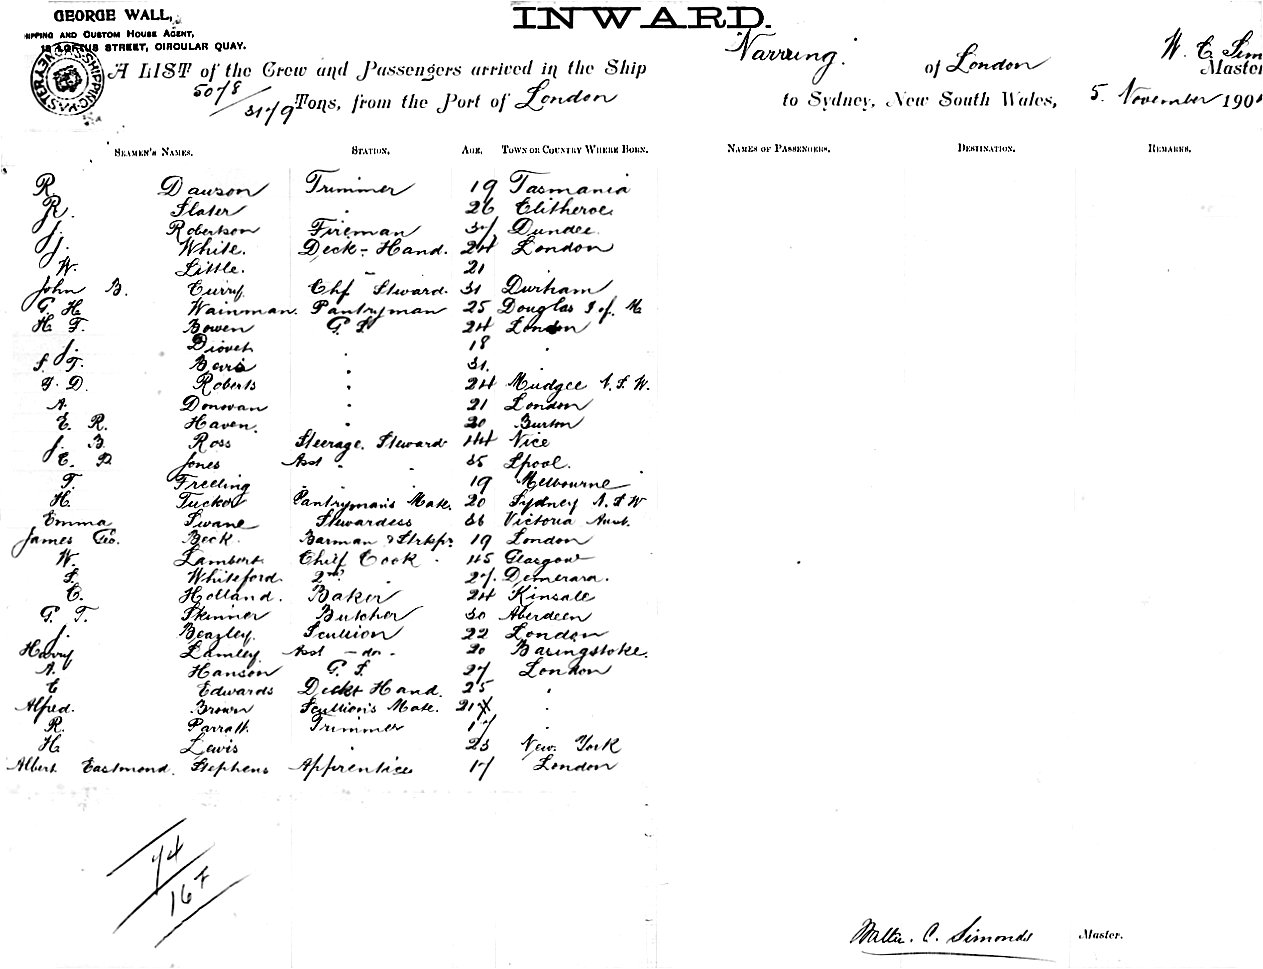 GEORGE WALL,
INWARD.
IPPING AND CUSTOM HOUSE AGENT,
LOFTUS STREET, CIRCULAR QUAY.
Narrung. of London W. C. Sim
Master
A LIST of the Crew and Passengers arrived in the Ship
Tons, from the Port of London to Sydney, New South Wales, 5. November 190
SEAMEN'S NAMES. STATION. AGE. TOWN OR COUNTRY WHERE BORN. NAMES OF PASSENGERS. DESTINATION. REMARKS.
R. Dawson Trimmer 19 Tasmania
R. Slater " 26 Clitheroe
J. Robertson Fireman 37 Dundee
J. White. Deck-Hand. 24 London
W. Little. " 21
John B. Curry. Chf Steward. 31 Durham
G H Wainman. Pantryman 25 Douglas I of. M
H F. Bowen G. S 24 London
J. " 18 "
S. T. " 31. "
D. Roberts " 24 Mudgee N.S.W.
A. Donovan " 21 London
E. R. Haven. " 20 Burton
J. B. Ross Steerage. Steward 44 Nice
C. P. Jones Asst " " 35 Lpool.
T. Freeling " " 19 Melbourne
H. Tucker Pantryman's Mate. 20 Sydney N.S.W
Emma Swane Stewardess 36 Victoria Aust.
James Geo. Beck. Barman & Strkpr. 19 London
W. Lambert. Chief Cook. 45 Glasgow
S. Whiteford. 2nd " 27. Demerara.
C. Holland. Baker 24 Kinsale
G. T. Skinner Butcher 30 Aberdeen
J. Beazley. Scullion 22 London
Harry Lamley Asst - do - 20 Basingstoke.
A. Hanson G. S. 27 London
C Edwards Deck Hand. 25 "
Alfred. Brown Scullion's Mate. 21 "
R. Parratt. Trimmer 17 "
H. Lewis " 23 New York
Albert Eastmond. Stephens Apprentice 17 London
74
16
Walter. C. Simonds Master.